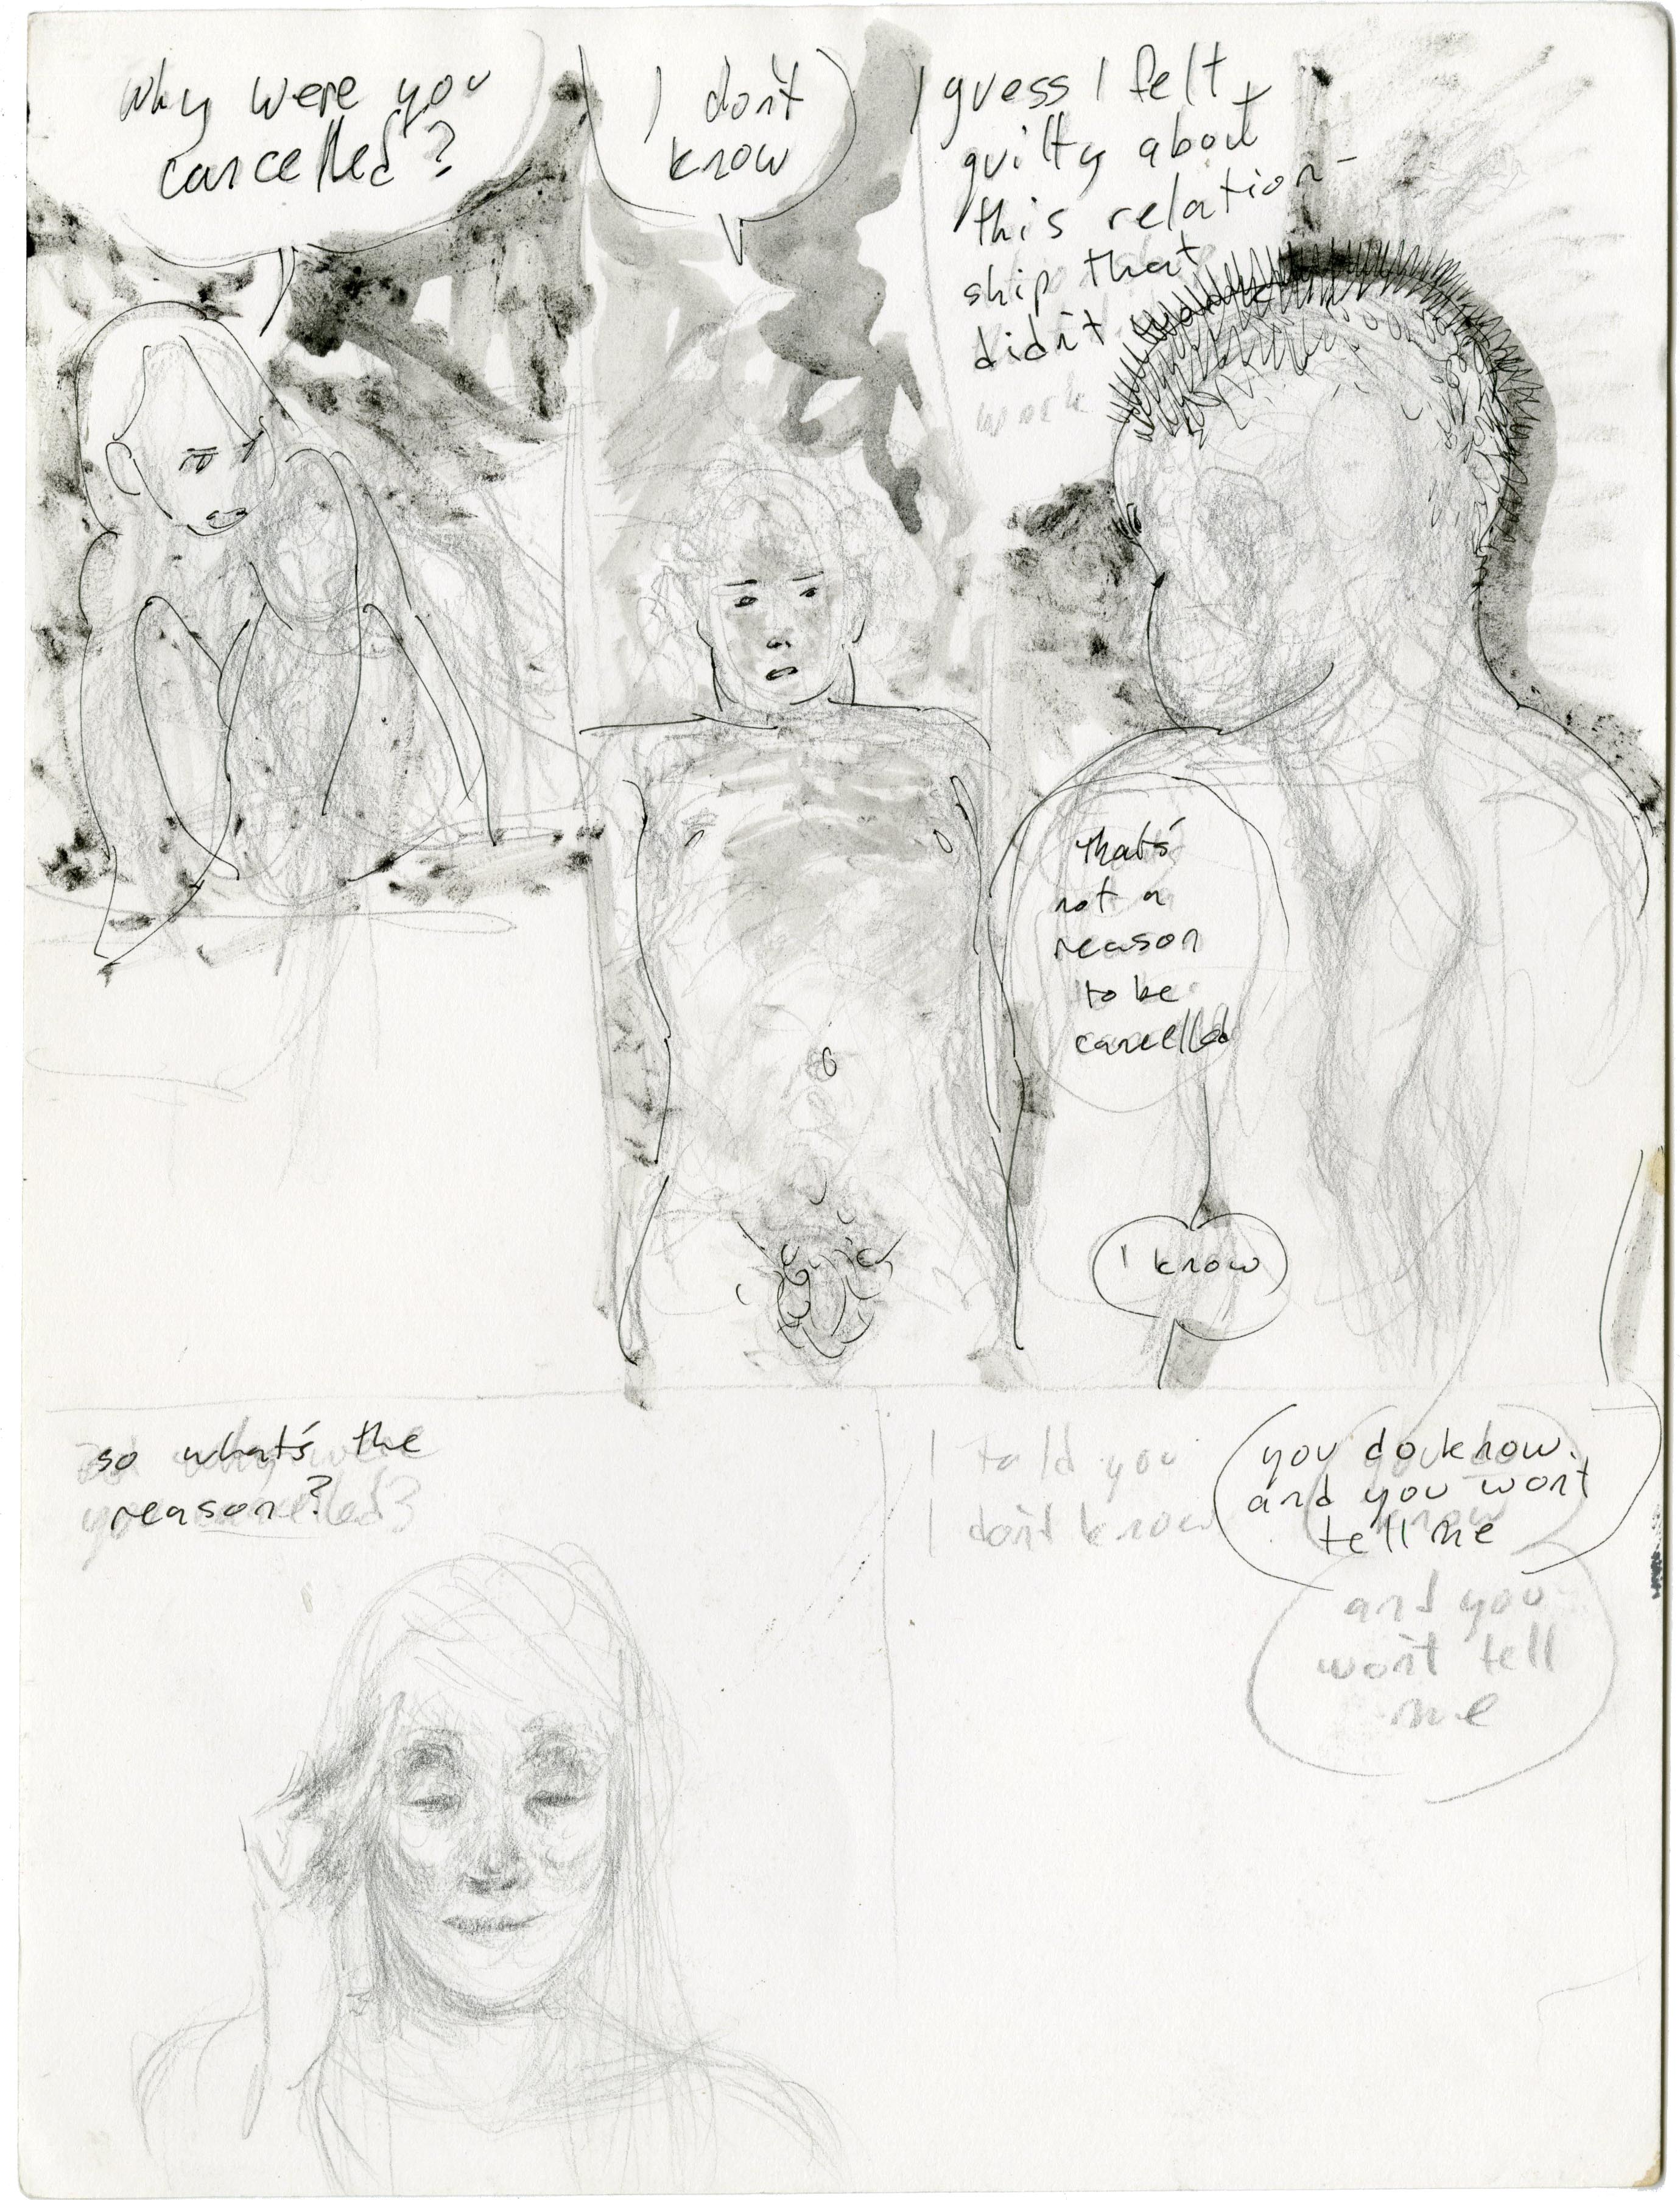 why were you
cancelled?
I don't
know
I guess I felt
guilty about
this relation-
ship that
didn't
work
that's
not a
reason
to be
cancelled
I know
so what's the
reason?
you cancelled?
I told you
I don't know
you do know.
and you won't
tell me
know
and you
won't tell
me